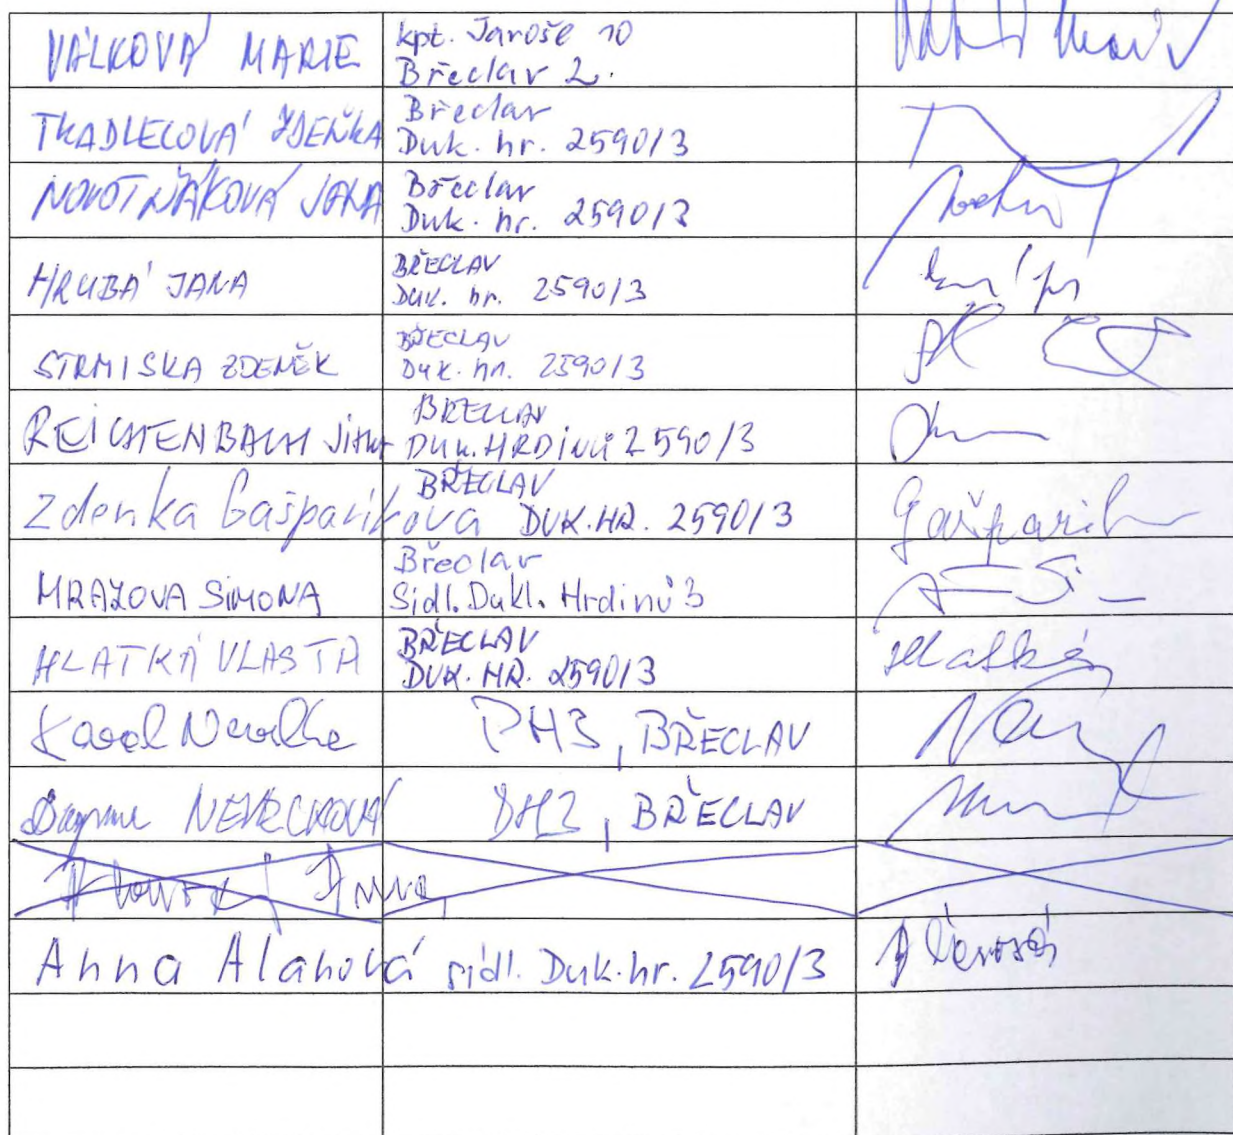 VÁLKOVÁ MARIE
kpt. Jaroše 10
Břeclav 2.
TKADLECOVÁ ZDEŇKA
Břeclav
Duk. hr. 2590/3
NOVOTŇÁKOVÁ JANA
Břeclav
Duk. hr. 2590/3
HRUBÁ JANA
BŘECLAV
Duk. hr. 2590/3
STRMISKA ZDENĚK
BŘECLAV
Duk. hr. 2590/3
REICHTENBACH
BŘECLAV
DUK. HRDINŮ 2590/3
Zdenka Gašparíková
BŘECLAV
DUK. HR. 2590/3
Gašparík
MRAZOVA SIMONA
Břeclav
Sidl. Dukl. Hrdinů 3
HLATKÁ VLASTA
BŘECLAV
DUK. HR. 2590/3
Hlatká
Karel
DH3, BŘECLAV
DH3, BŘECLAV
Anna Alanová sídl. Duk. hr. 2590/3